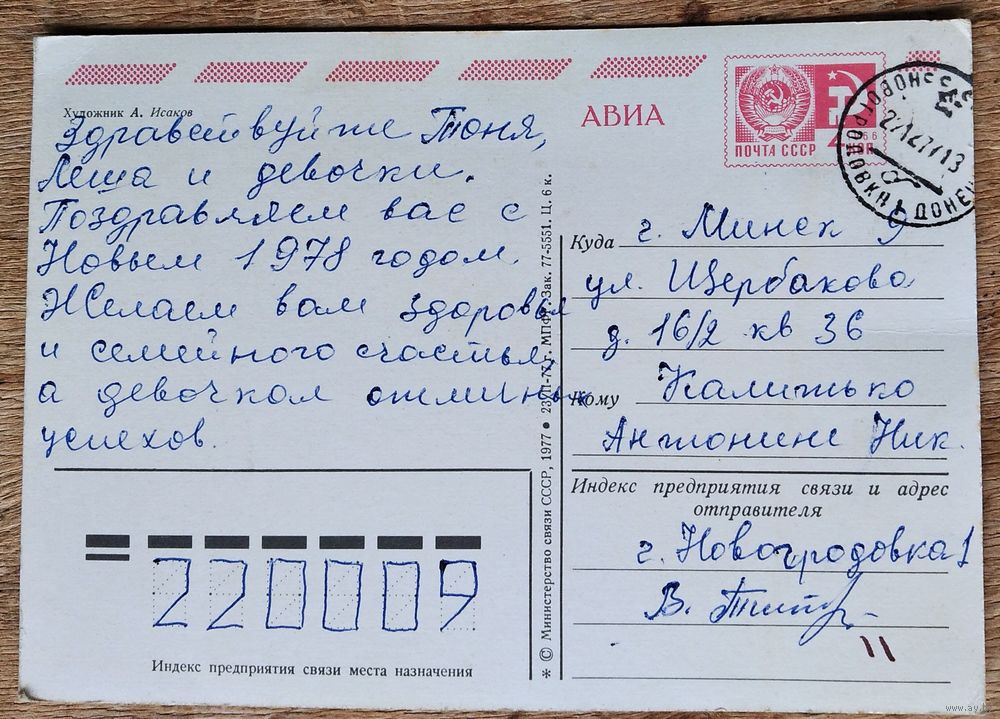 Художник А. Исаков
Здравствуйте Тоня,
Леша и девочки.
Поздравляем вас с
Новым 1978 годом.
Желаем вам здоровья
и семейного счастья,
а девочкам отличных
успехов.
АВИА
ПОЧТА СССР
Куда г. Минск 9
ул. Щербакова
д. 16/2 кв 36
Кому Калитько
Антонине Ник.
Индекс предприятия связи и адрес
отправителя
г. Новогродовка 1
В.
11
220009
Индекс предприятия связи места назначения
* © Министерство связи СССР, 1977 ● Зак. 77-5551. Ц. 6 к.
www.ay.by